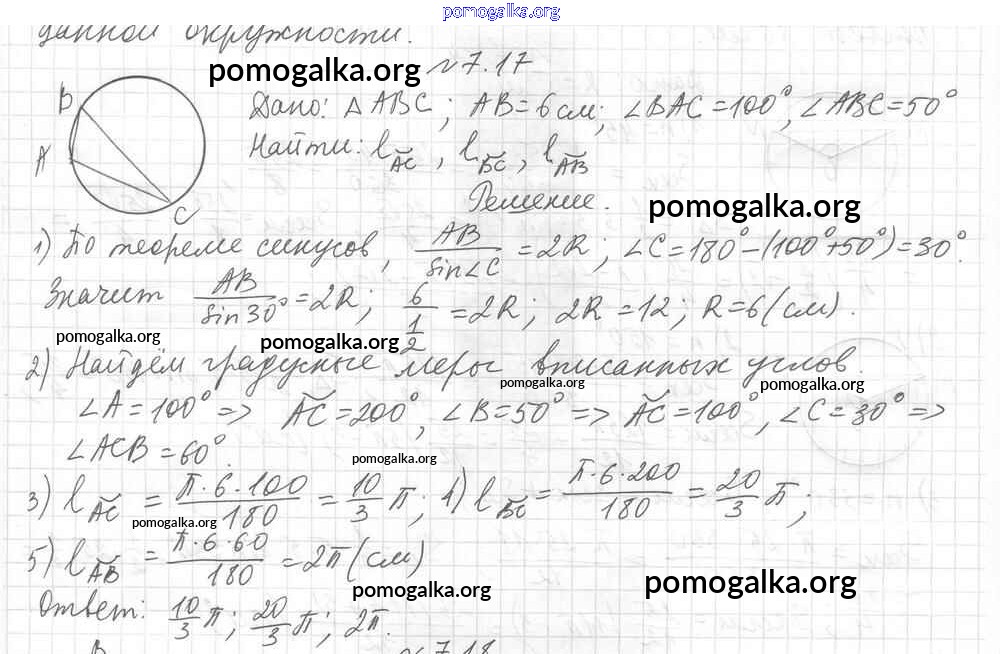 pomogalka.org
данной окружности.
pomogalka.org № 7.17
B A C
Дано: △ ABC; AB = 6 см; ∠BAC = 100°, ∠ABC = 50°
Найти: l⌣AC, l⌣BC, l⌣AB
Решение.
pomogalka.org
1) По теореме синусов, AB/sin∠C = 2R; ∠C = 180° − (100° + 50°) = 30°.
Значит AB/sin30° = 2R; 6/(1/2) = 2R; 2R = 12; R = 6 (см).
pomogalka.org pomogalka.org
2) Найдём градусные меры вписанных углов.
pomogalka.org pomogalka.org
∠A = 100° => ⌣AC = 200°, ∠B = 50° => ⌣AC = 100°, ∠C = 30° =>
∠ACB = 60°.
pomogalka.org
3) l⌣AC = π·6·100/180 = 10/3 π; 4) l⌣BC = π·6·200/180 = 20/3 π;
pomogalka.org
5) l⌣AB = π·6·60/180 = 2π (см)
pomogalka.org pomogalka.org
Ответ: 10/3 π; 20/3 π; 2π.
В № 7.18